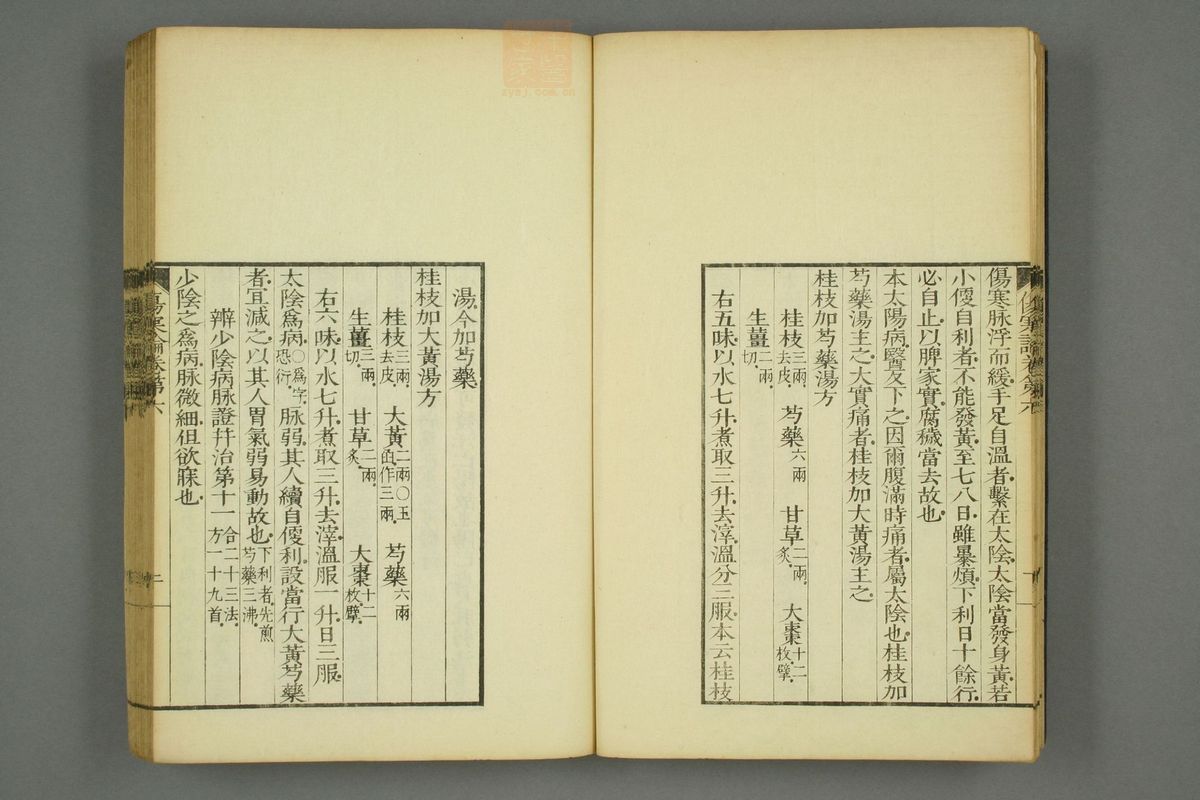 傷寒脉浮而緩手足自溫者繫在太陰太陰當發身黃若
小便自利者不能發黃至七八日雖暴煩下利日十餘行
必自止以脾家實腐穢當去故也
本太陽病醫反下之因爾腹滿時痛者屬太陰也桂枝加
芍藥湯主之大實痛者桂枝加大黃湯主之
桂枝加芍藥湯方
桂枝三兩去皮 芍藥六兩 甘草二兩炙 大棗十二枚擘
生薑二兩切
右五味以水七升煮取三升去滓溫分三服本云桂枝
湯今加芍藥
桂枝加大黃湯方
桂枝三兩去皮 大黃二兩○玉函作三兩 芍藥六兩
生薑三兩切 甘草二兩炙 大棗十二枚擘
右六味以水七升煮取三升去滓溫服一升日三服
太陰爲病○爲字恐衍脉弱其人續自便利設當行大黃芍藥
者冝減之以其人胃氣弱易動故也下利者先煎芍藥三沸
辨少陰病脉證幷治第十一合二十三法方一十九首
少陰之爲病脉微細但欲寐也
傷寒論卷第六
二
zysj.com.cn